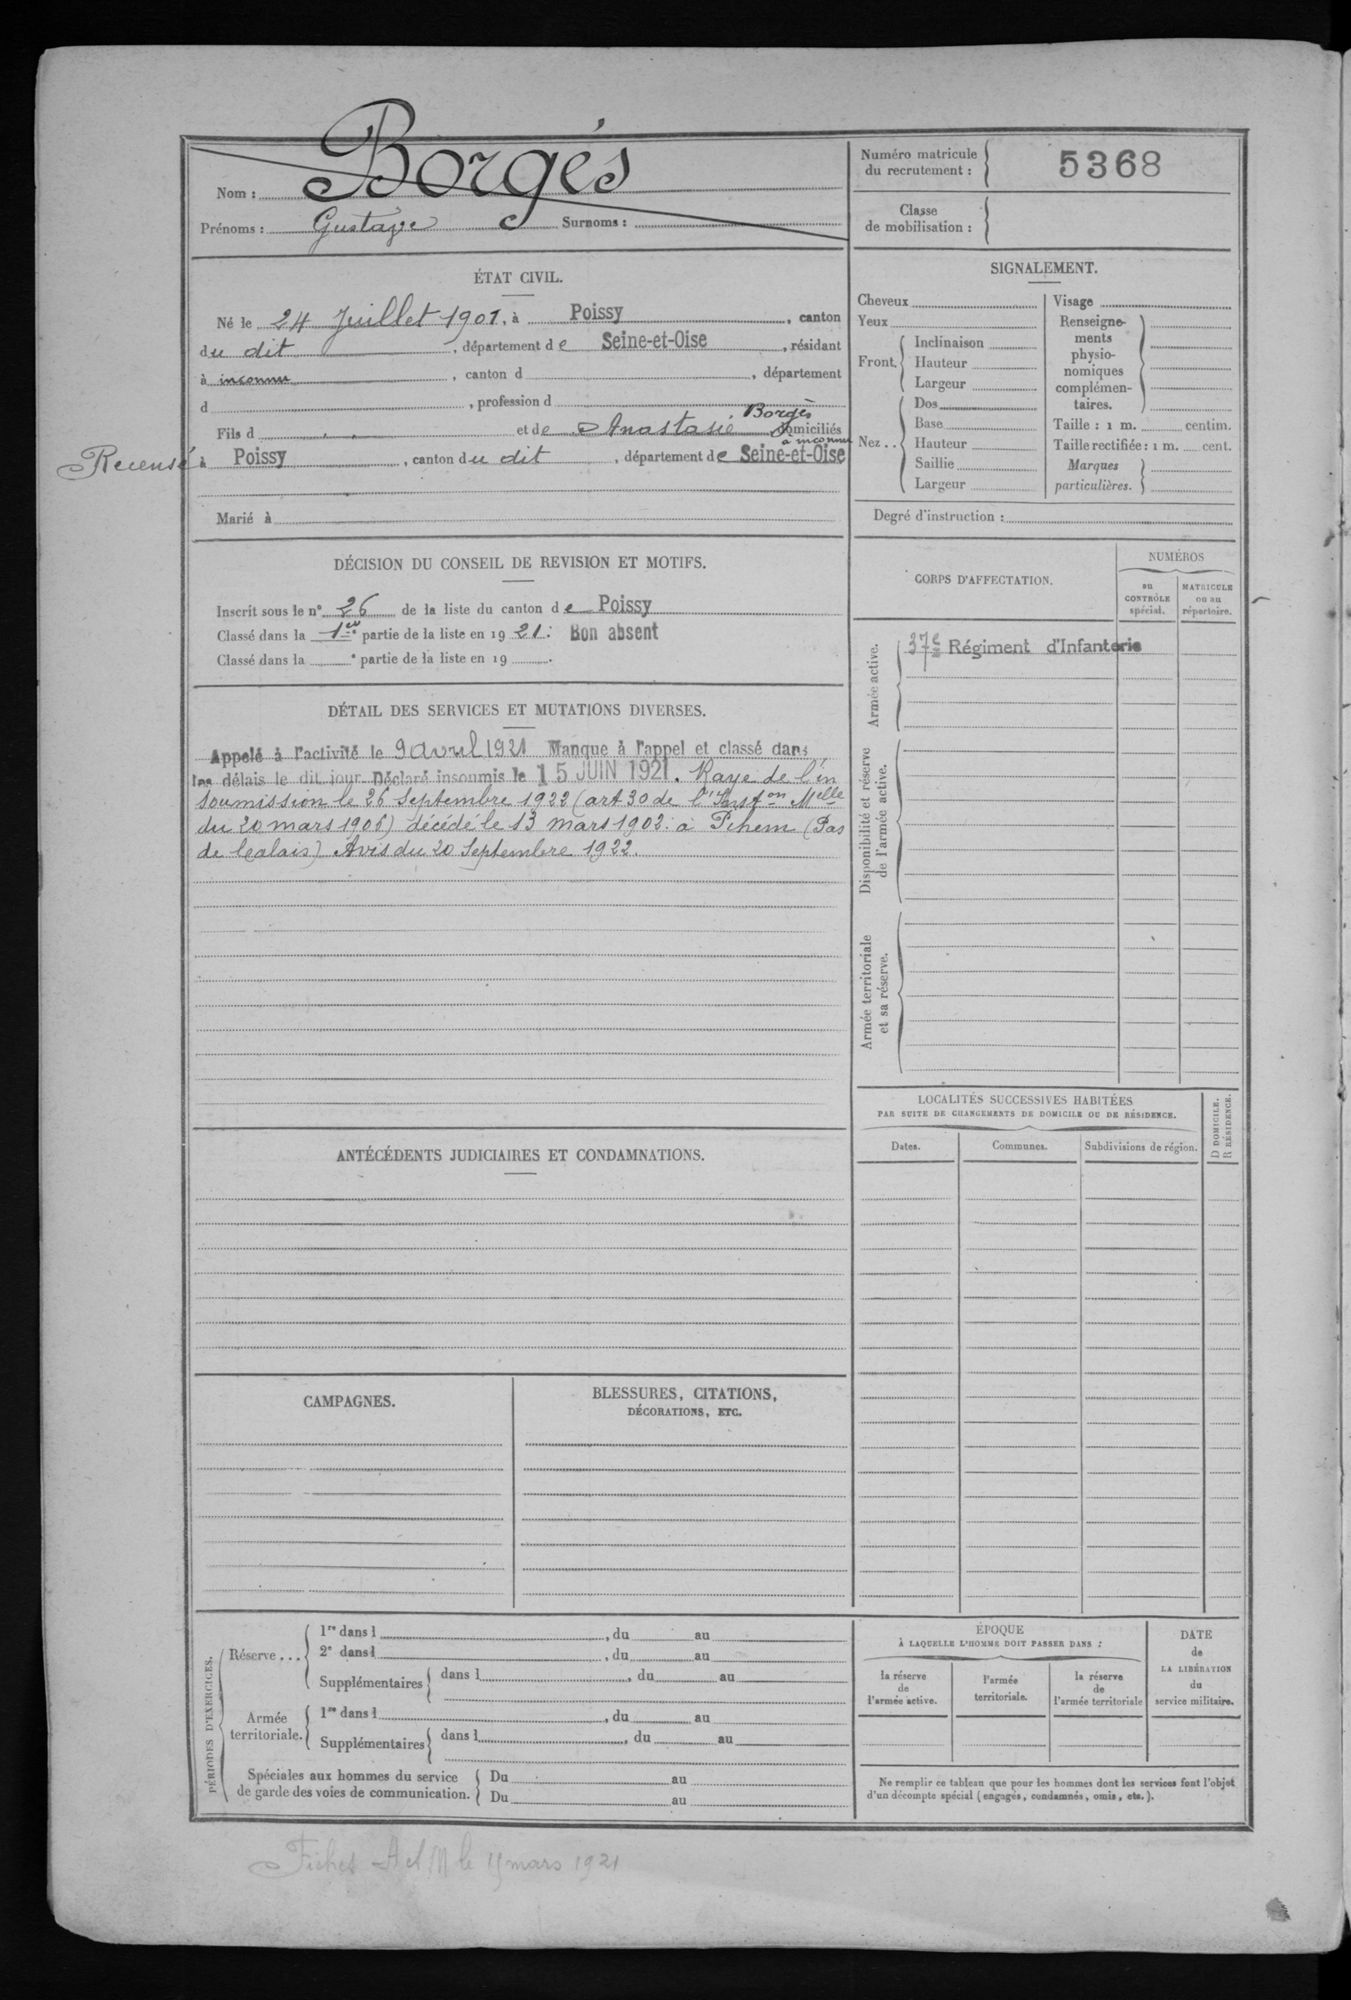 Nom : Borgés
Prénoms : Gustave Surnoms :
Numéro matricule
du recrutement :
5368
Classe
de mobilisation :
ÉTAT CIVIL.
Né le 24 Juillet 1901, à Poissy, canton
du dit, département de Seine-et-Oise, résidant
à inconnu, canton d, département
d, profession d
Borgès
Fils d et de Anastasie domiciliés
à inconnu
Recensé à Poissy, canton du dit, département de Seine-et-Oise
Marié à
SIGNALEMENT.
Cheveux
Yeux
Front.
Inclinaison
Hauteur
Largeur
Nez . .
Dos
Base
Hauteur
Saillie
Largeur
Visage
Renseigne-
ments
physio-
nomiques
complémen-
taires.
Taille : 1 m. centim.
Taille rectifiée : 1 m. cent.
Marques
particulières.
Degré d'instruction :
DÉCISION DU CONSEIL DE REVISION ET MOTIFS.
Inscrit sous le n° 26 de la liste du canton de Poissy
Classé dans la 1re partie de la liste en 1921 : Bon absent
Classé dans la e partie de la liste en 19 .
CORPS D'AFFECTATION.
NUMÉROS
au
CONTRÔLE
spécial.
MATRICULE
ou au
répertoire.
Armée active.
37e Régiment d'Infanterie
Disponibilité et réserve
de l'armée active.
Armée territoriale
et sa réserve.
DÉTAIL DES SERVICES ET MUTATIONS DIVERSES.
Appelé à l'activité le 9 avril 1921 Manque à l'appel et classé dans
les délais le dit jour Déclaré insoumis le 15 JUIN 1921. Raye de l'in
soumission le 26 Septembre 1922 (art 30 de l'Inston Melle
du 20 mars 1906) décédé le 13 mars 1902. à Pihem (Pas
de Calais) Avis du 20 Septembre 1922.
LOCALITÉS SUCCESSIVES HABITÉES
PAR SUITE DE CHANGEMENTS DE DOMICILE OU DE RÉSIDENCE.
Dates.
Communes.
Subdivisions de région.
D DOMICILE.
R RÉSIDENCE.
ANTÉCÉDENTS JUDICIAIRES ET CONDAMNATIONS.
CAMPAGNES.
BLESSURES, CITATIONS,
DÉCORATIONS, ETC.
PÉRIODES D'EXERCICES.
Réserve . . .
1re dans l, du au
2e dans l, du au
Supplémentaires dans l, du au
Armée
territoriale.
1re dans l, du au
Supplémentaires dans l, du au
Spéciales aux hommes du service
de garde des voies de communication.
Du au
Du au
ÉPOQUE
À LAQUELLE L'HOMME DOIT PASSER DANS :
la réserve
de
l'armée active.
l'armée
territoriale.
la réserve
de
l'armée territoriale
DATE
de
LA LIBÉRATION
du
service militaire.
Ne remplir ce tableau que pour les hommes dont les services font l'objet
d'un décompte spécial (engagés, condamnés, omis, etc.).
Fiches A et M le mars 1921